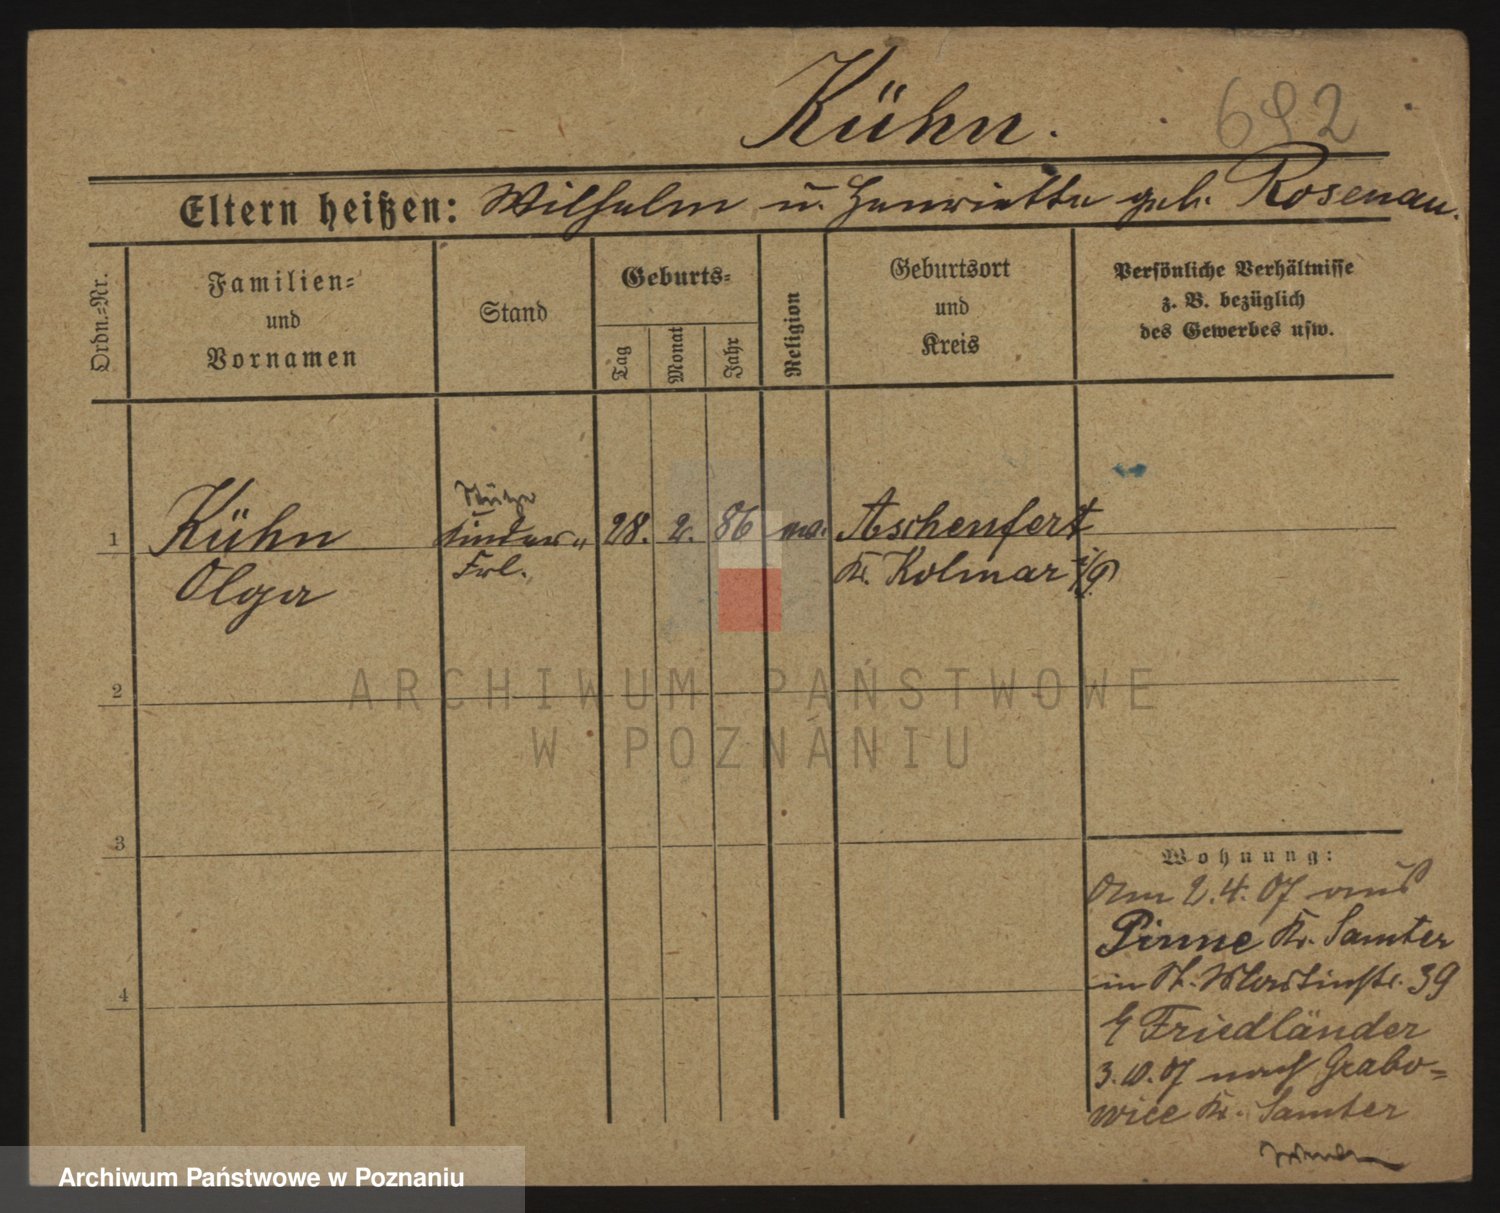 Kühn.
692
Eltern heißen: Wilhelm u. Henriette geb. Rosenau.
Ordn.-Nr.
Familien-
und
Vornamen
Stand
Geburts-
Tag
Monat
Jahr
Religion
Geburtsort
und
Kreis
Persönliche Verhältnisse
z. B. bezüglich
des Gewerbes usw.
Stütze
1 Kühn Kinder- 28. 2. 86 ev. Aschenfort
Olga Frl. Kr. Kolmar i/P
2
ARCHIWUM PAŃSTWOWE
W POZNANIU
3
Wohnung:
Am 2.4.07 aus
Pinne Kr. Samter
in St. Martinstr. 39
b/ Friedländer
4
3.10.07 nach Grabo-
wice Kr. Samter
Archiwum Państwowe w Poznaniu